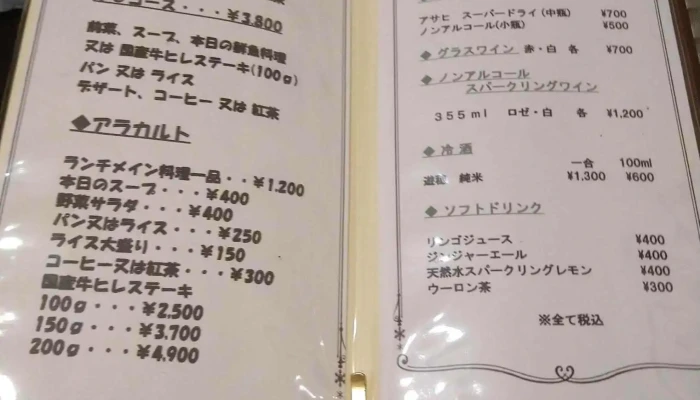 コース・・・¥3,800
前菜、スープ、本日の鮮魚料理
又は 国産牛ヒレステーキ(100g)
パン 又は ライス
デザート、コーヒー 又は 紅茶
◆アラカルト
ランチメイン料理一品・・¥1,200
本日のスープ・・・¥400
野菜サラダ・・・¥400
パン又はライス・・・¥250
ライス大盛り・・・¥150
コーヒー又は紅茶・・・¥300
国産牛ヒレステーキ
100g・・・¥2,500
150g・・・¥3,700
200g・・・¥4,900
アサヒ スーパードライ(中瓶) ¥700
ノンアルコール(小瓶) ¥500
◆ グラスワイン 赤・白 各 ¥700
◆ ノンアルコール
スパークリングワイン
355ml ロゼ・白 各 ¥1,200
◆ 冷酒
一合 100ml
純米 ¥1,300 ¥600
◆ ソフトドリンク
リンゴジュース ¥400
ジンジャーエール ¥400
天然水スパークリングレモン ¥400
ウーロン茶 ¥300
※全て税込